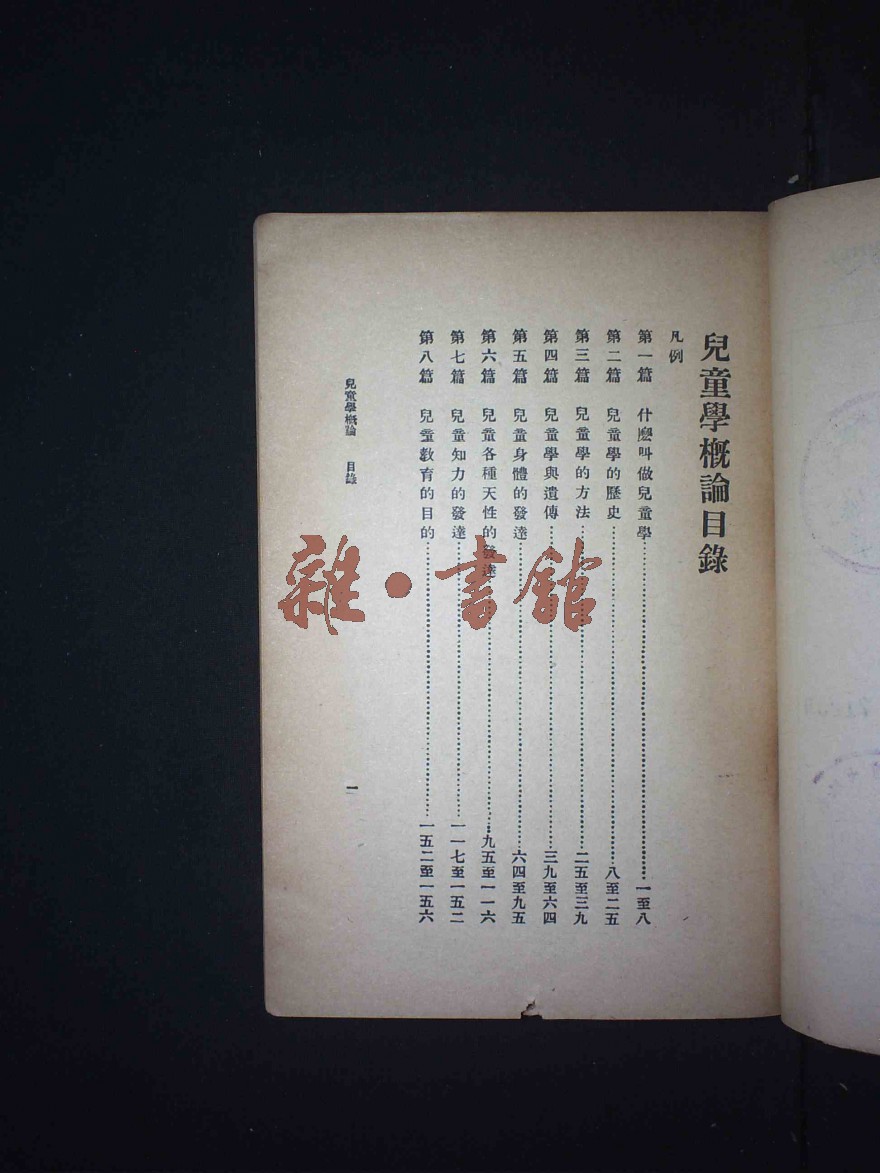 兒童學概論目錄
凡例
第一篇 什麼叫做兒童學……一至八
第二篇 兒童學的歷史……八至二五
第三篇 兒童學的方法……二五至三九
第四篇 兒童學與遺傳……三九至六四
第五篇 兒童身體的發達……六四至九五
第六篇 兒童各種天性的發達……九五至一一六
第七篇 兒童知力的發達……一一七至一五二
第八篇 兒童教育的目的……一五二至一五六
兒童學概論 目錄 一
雜·書館